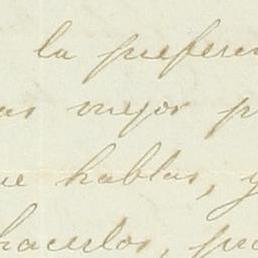 la prefere
as mejor p
ue hablas, y
hacerlos, pu